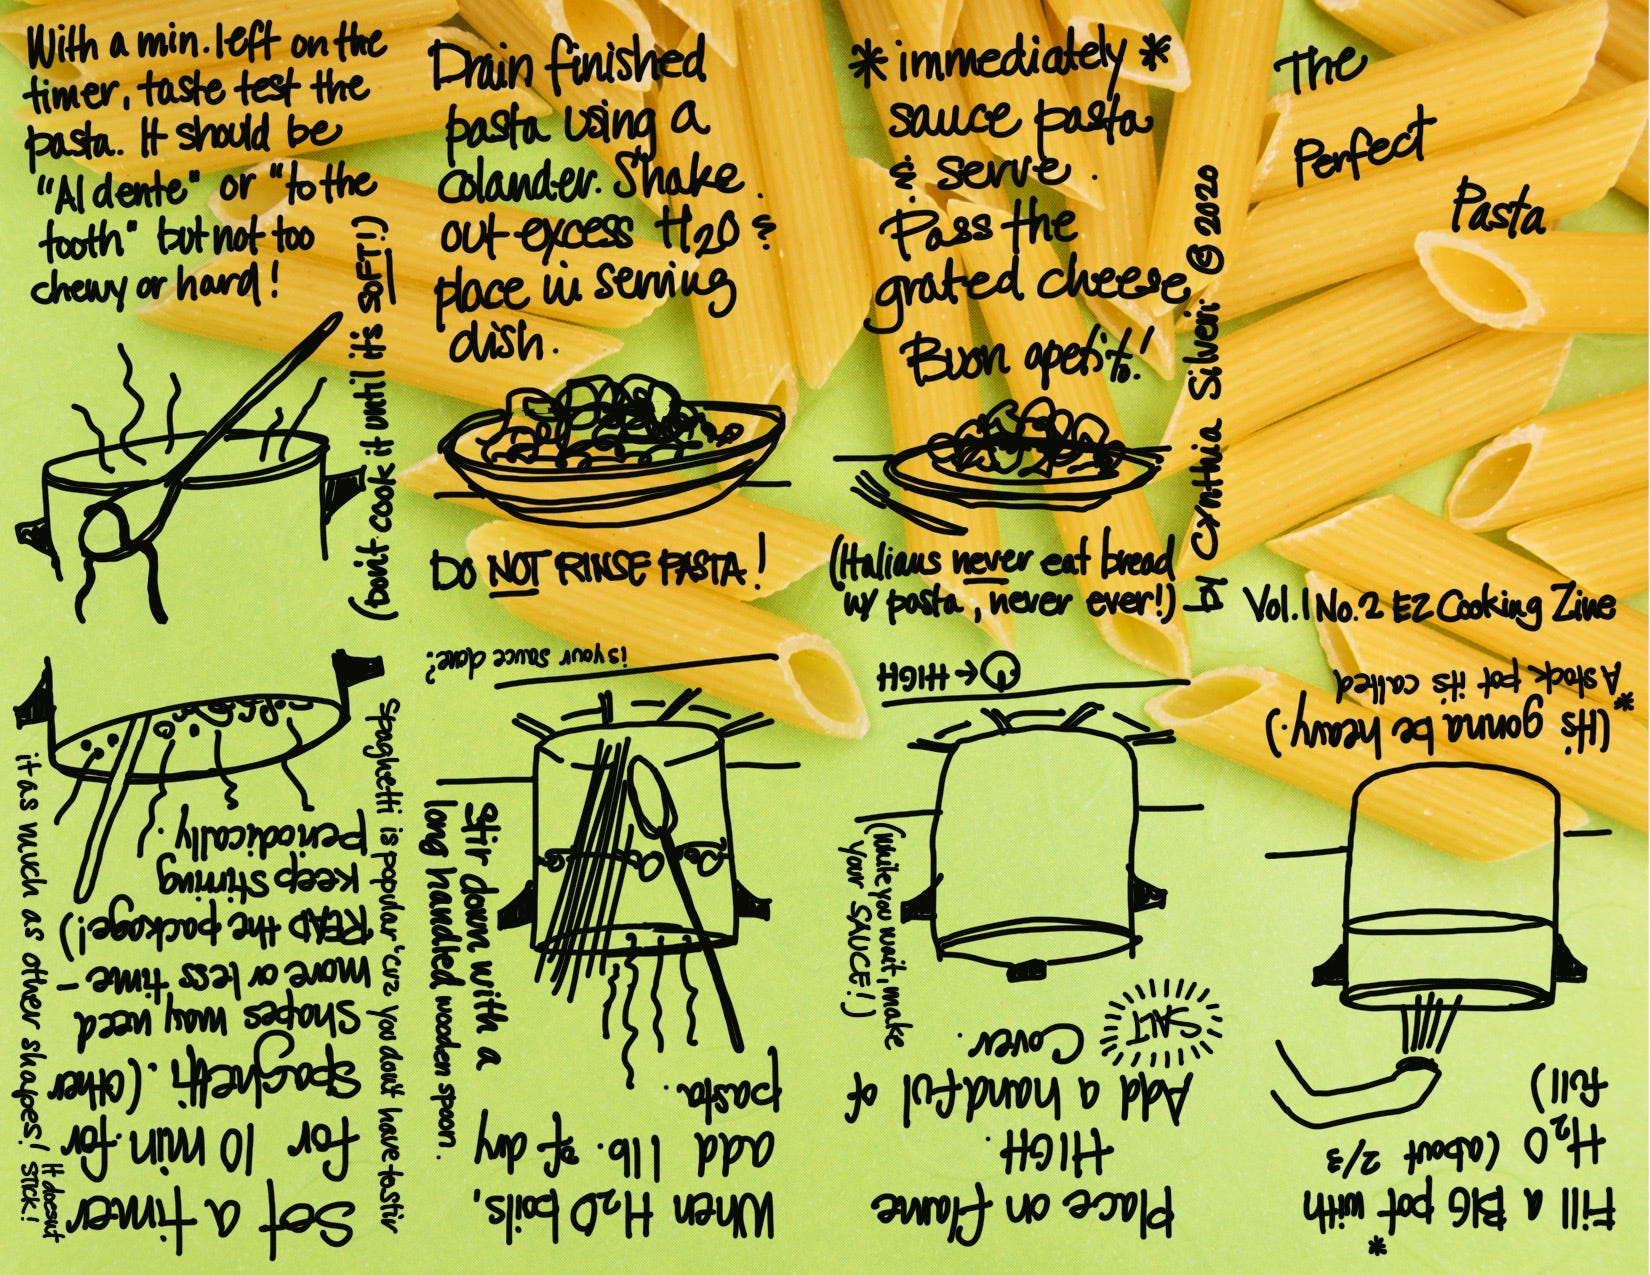 The
Perfect
Pasta
Vol.1 No.2 EZ Cooking Zine
Fill a BIG* pot with
H2O (about 2/3
full)
(It's gonna be heavy.)
*A stock pot it's called
Place on flame
HIGH.
Add a handful of
SALT
Cover.
(While you wait, make
your SAUCE!)
HIGH ←
When H2O boils,
add 1 lb. of dry
pasta.
Stir down with a
long handled wooden spoon.
is your sauce done?
Set a timer
for 10 min. for
spaghetti. (Other
shapes may need
more or less time -
READ the package!)
keep stirring
periodically.
Spaghetti is popular 'cuz you don't have to stir
it as much as other shapes! It doesn't
stick!
With a min. left on the
timer, taste test the
pasta. It should be
"Al dente" or "to the
tooth" but not too
chewy or hard!
(Don't cook it until it's SOFT!)
Drain finished
pasta using a
colander. Shake
out excess H2O &
place in serving
dish.
DO NOT RINSE PASTA!
* immediately *
sauce pasta
& serve.
Pass the
grated cheese
Buon apetito!
(Italians never eat bread
w/ pasta, never ever!)
by Cynthia Silveri © 2020